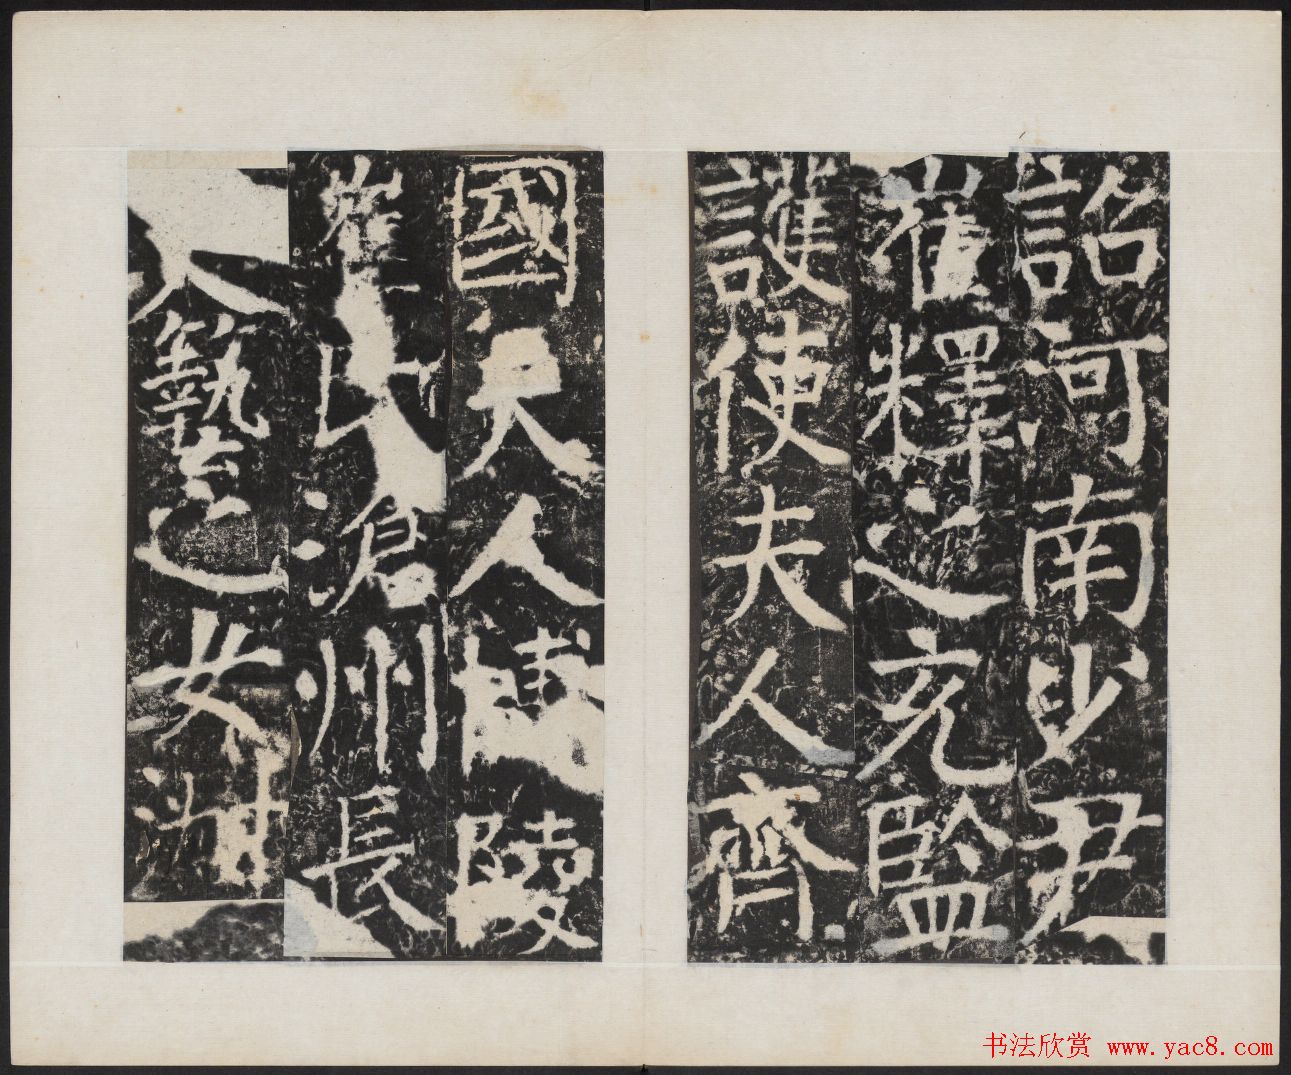 詔河南少尹
崔釋之充監
護使夫人齊
國夫人博陵
崔氏滄州長
藝之女淑
书法欣赏 www.yac8.com